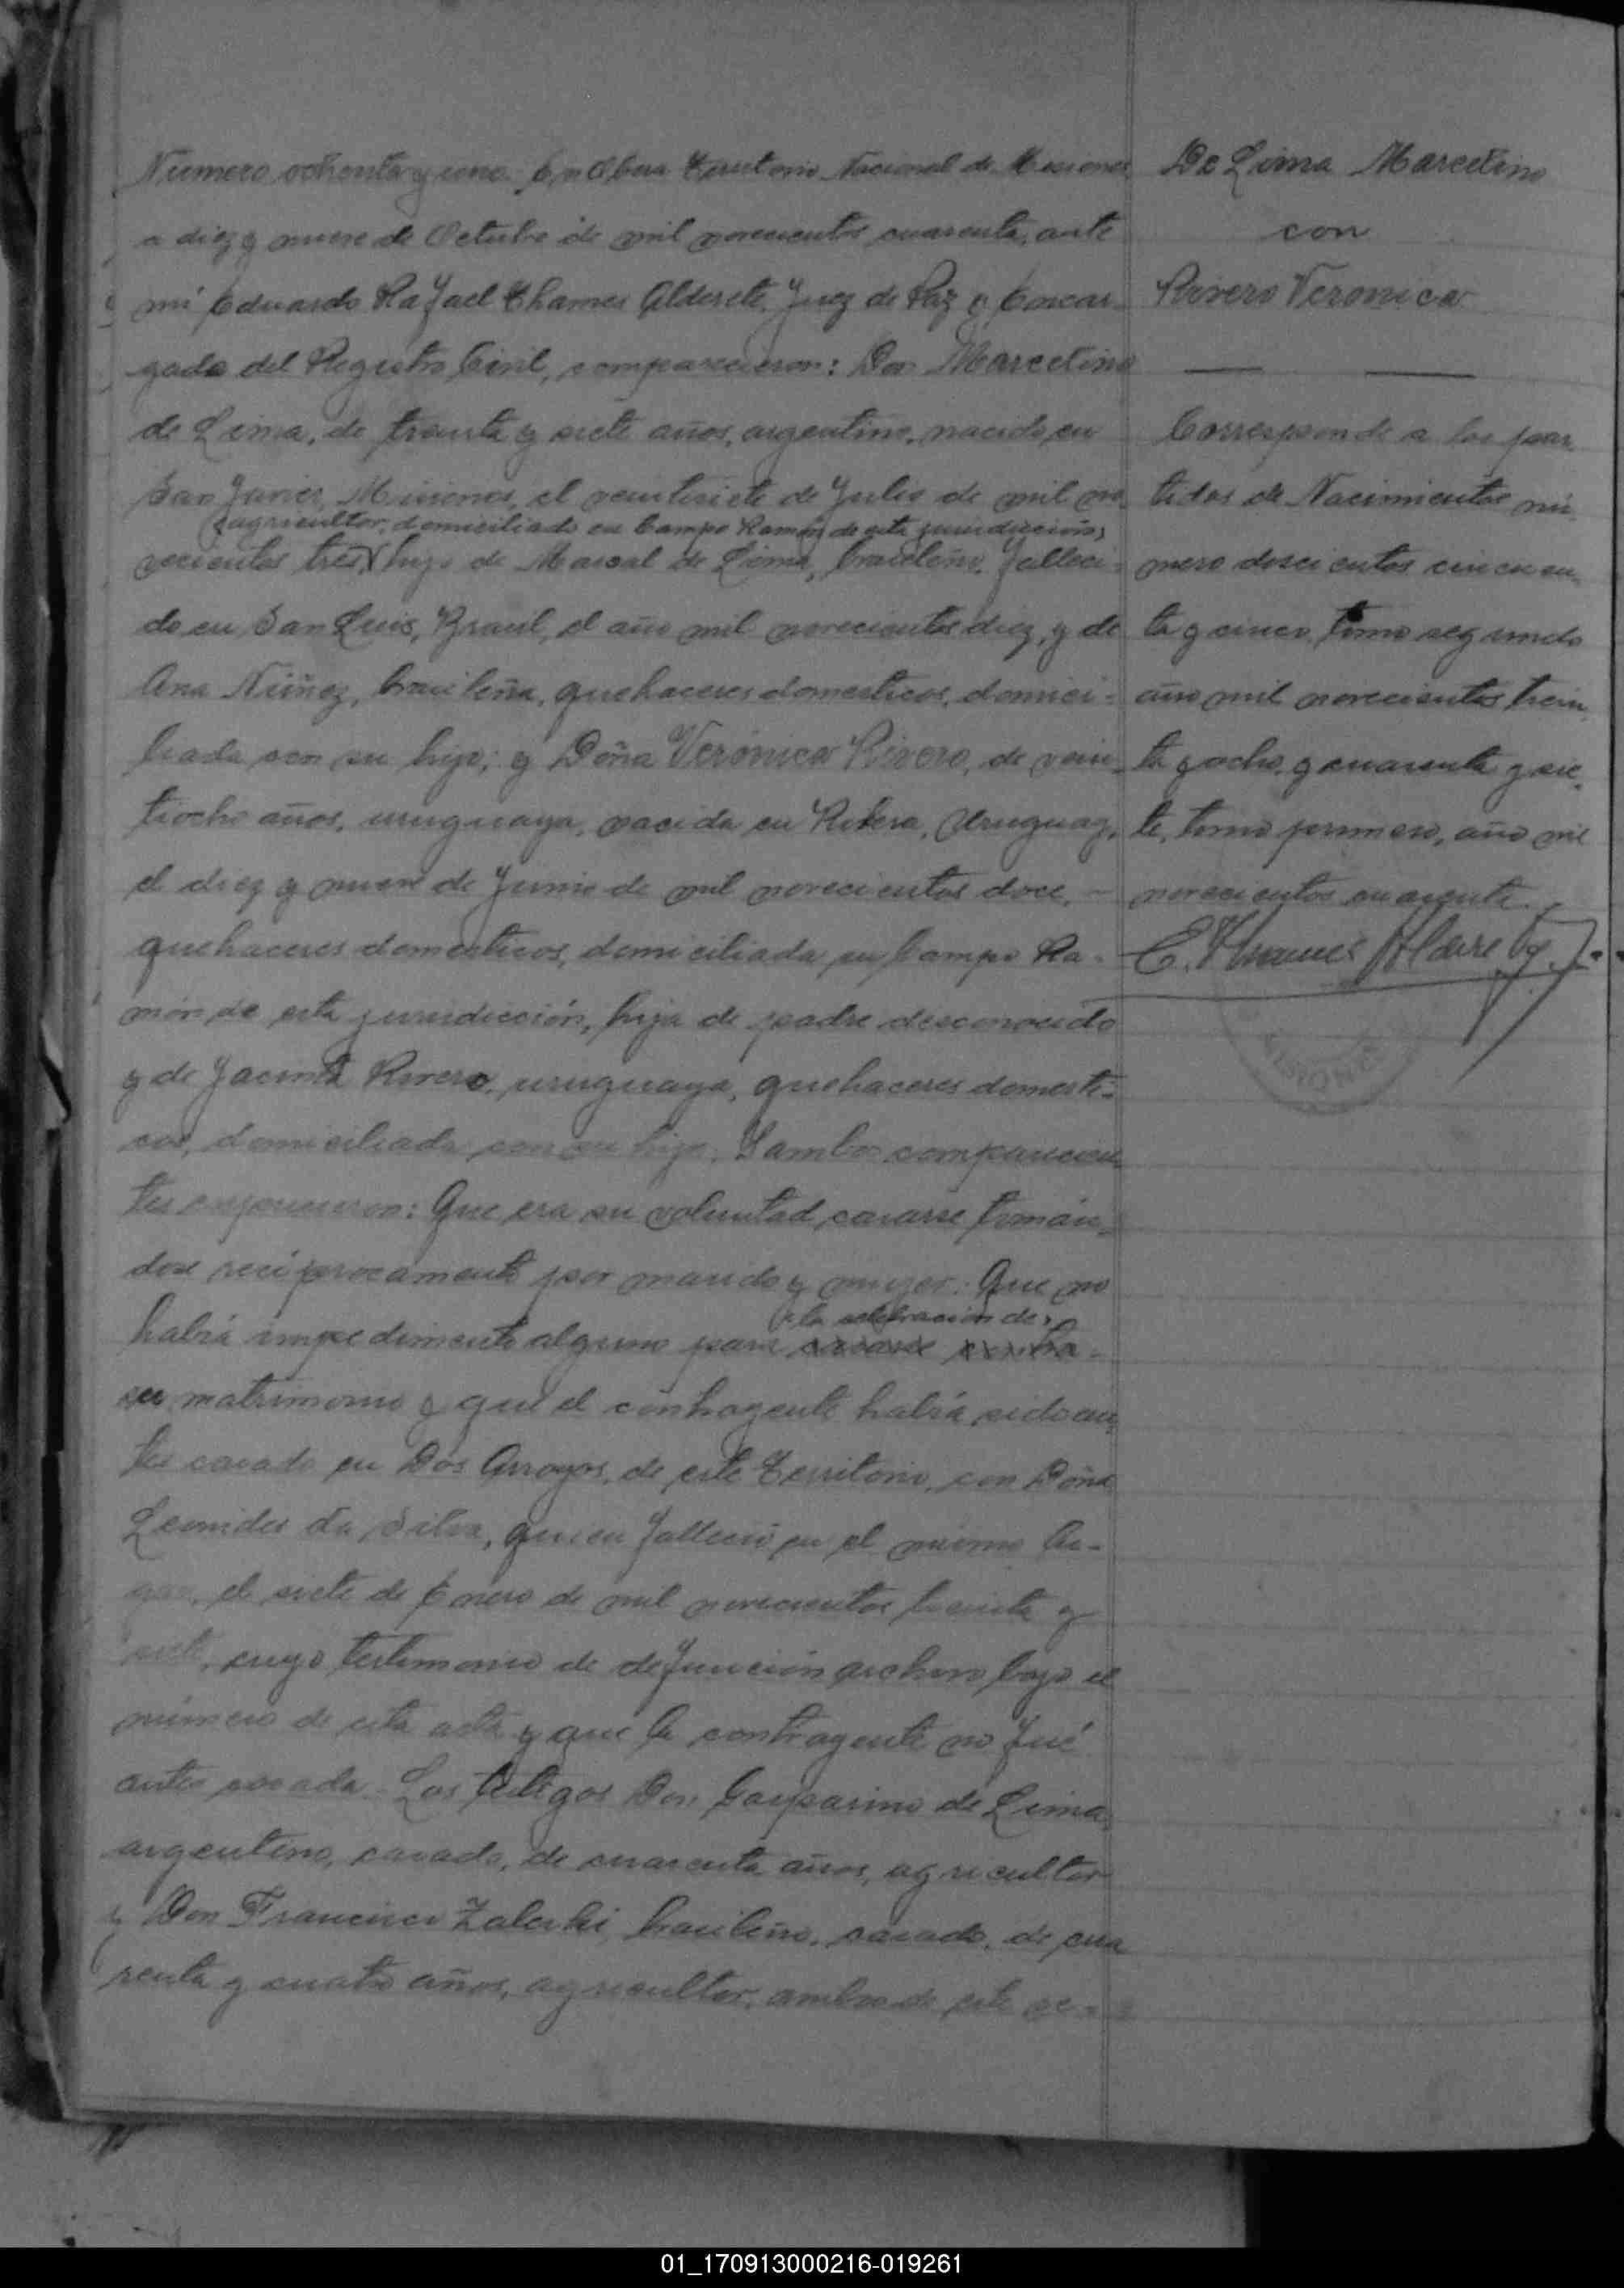 Número ochenta y uno. En Obera Territorio Nacional de Misiones
a diez y nueve de Octubre de mil novecientos cuarenta, ante
mí Eduardo Rafael Thames Alderete, Juez de Paz y Encar-
gado del Registro Civil, comparecieron: Don Marcelino
de Lima, de treinta y siete años, argentino, nacido en
San Javier, Misiones, el veintisiete de Julio de mil no-
agricultor, domiciliado en Campo Ramón de esta jurisdicción,
vecientos tres, hijo de Marsal de Lima, brasileño, falleci-
do en San Luis, Brasil, el año mil novecientos diez, y de
Ana Núñez, brasileña, quehaceres domesticos, domici-
liada con su hijo; y Doña Verónica Rivero, de vein-
tiocho años, uruguaya, nacida en Rivera, Uruguay,
el diez y nueve de Junio de mil novecientos doce, -
quehaceres domesticos, domiciliada en Campo Ra-
món de esta jurisdicción, hija de padre desconocido
y de Jacinta Rivero, uruguaya, quehaceres domesti-
cos, domiciliada con su hija. Y ambos comparecien-
tes expusieron: Que era su voluntad casarse tomán-
dose recíprocamente por marido y mujer. Que no
la celebración de
había impedimento alguno para
su matrimonio y que el contrayente había sido an-
tes casado en Dos Arroyos, de este Territorio, con Doña
Leonides da Silva, quien falleció en el mismo lu-
gar, el siete de Enero de mil novecientos treinta y
siete, cuyo testimonio de defunción archivo bajo el
número de esta acta y que la contrayente no fué
antes casada. Los testigos Don Gasparino de Lima,
argentino, casado, de cuarenta años, agricultor
y Don Francisco Zaleski, brasileño, casado, de cua
renta y cuatro años, agricultor, ambos de este ve-
De Lima Marcelino
con
Rivero Veronica
Corresponde a las par
tidas de Nacimientos nú-
mero doscientos cincuen-
ta y cinco, tomo segundo
año mil novecientos trein-
ta y ocho, y cuarenta y sie-
te, tomo primero, año mil
novecientos cuarenta.
E. Thames Alderete
MISIONES
01_170913000216-019261